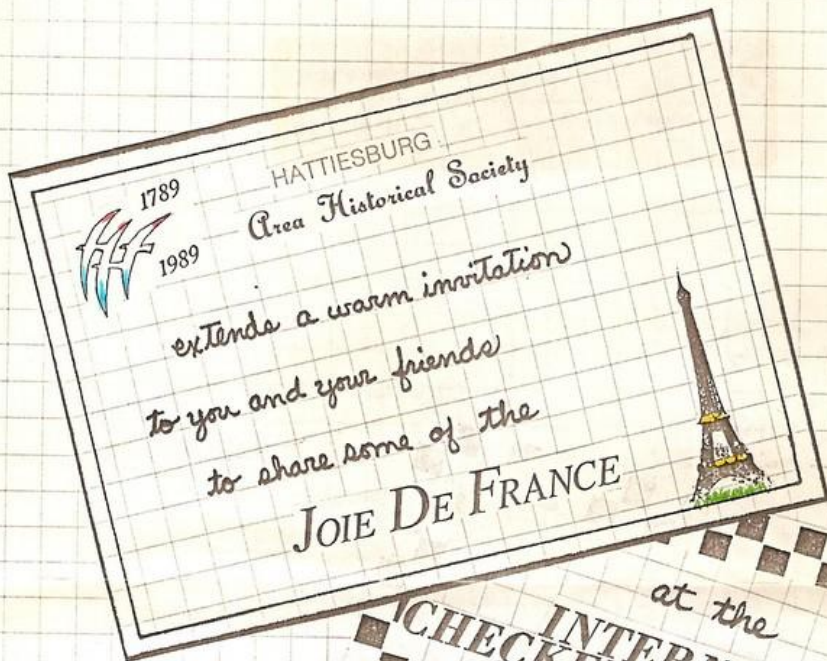 1789
1989
HATTIESBURG
Area Historical Society
extends a warm invitation
to you and your friends
to share some of the
JOIE DE FRANCE
at the